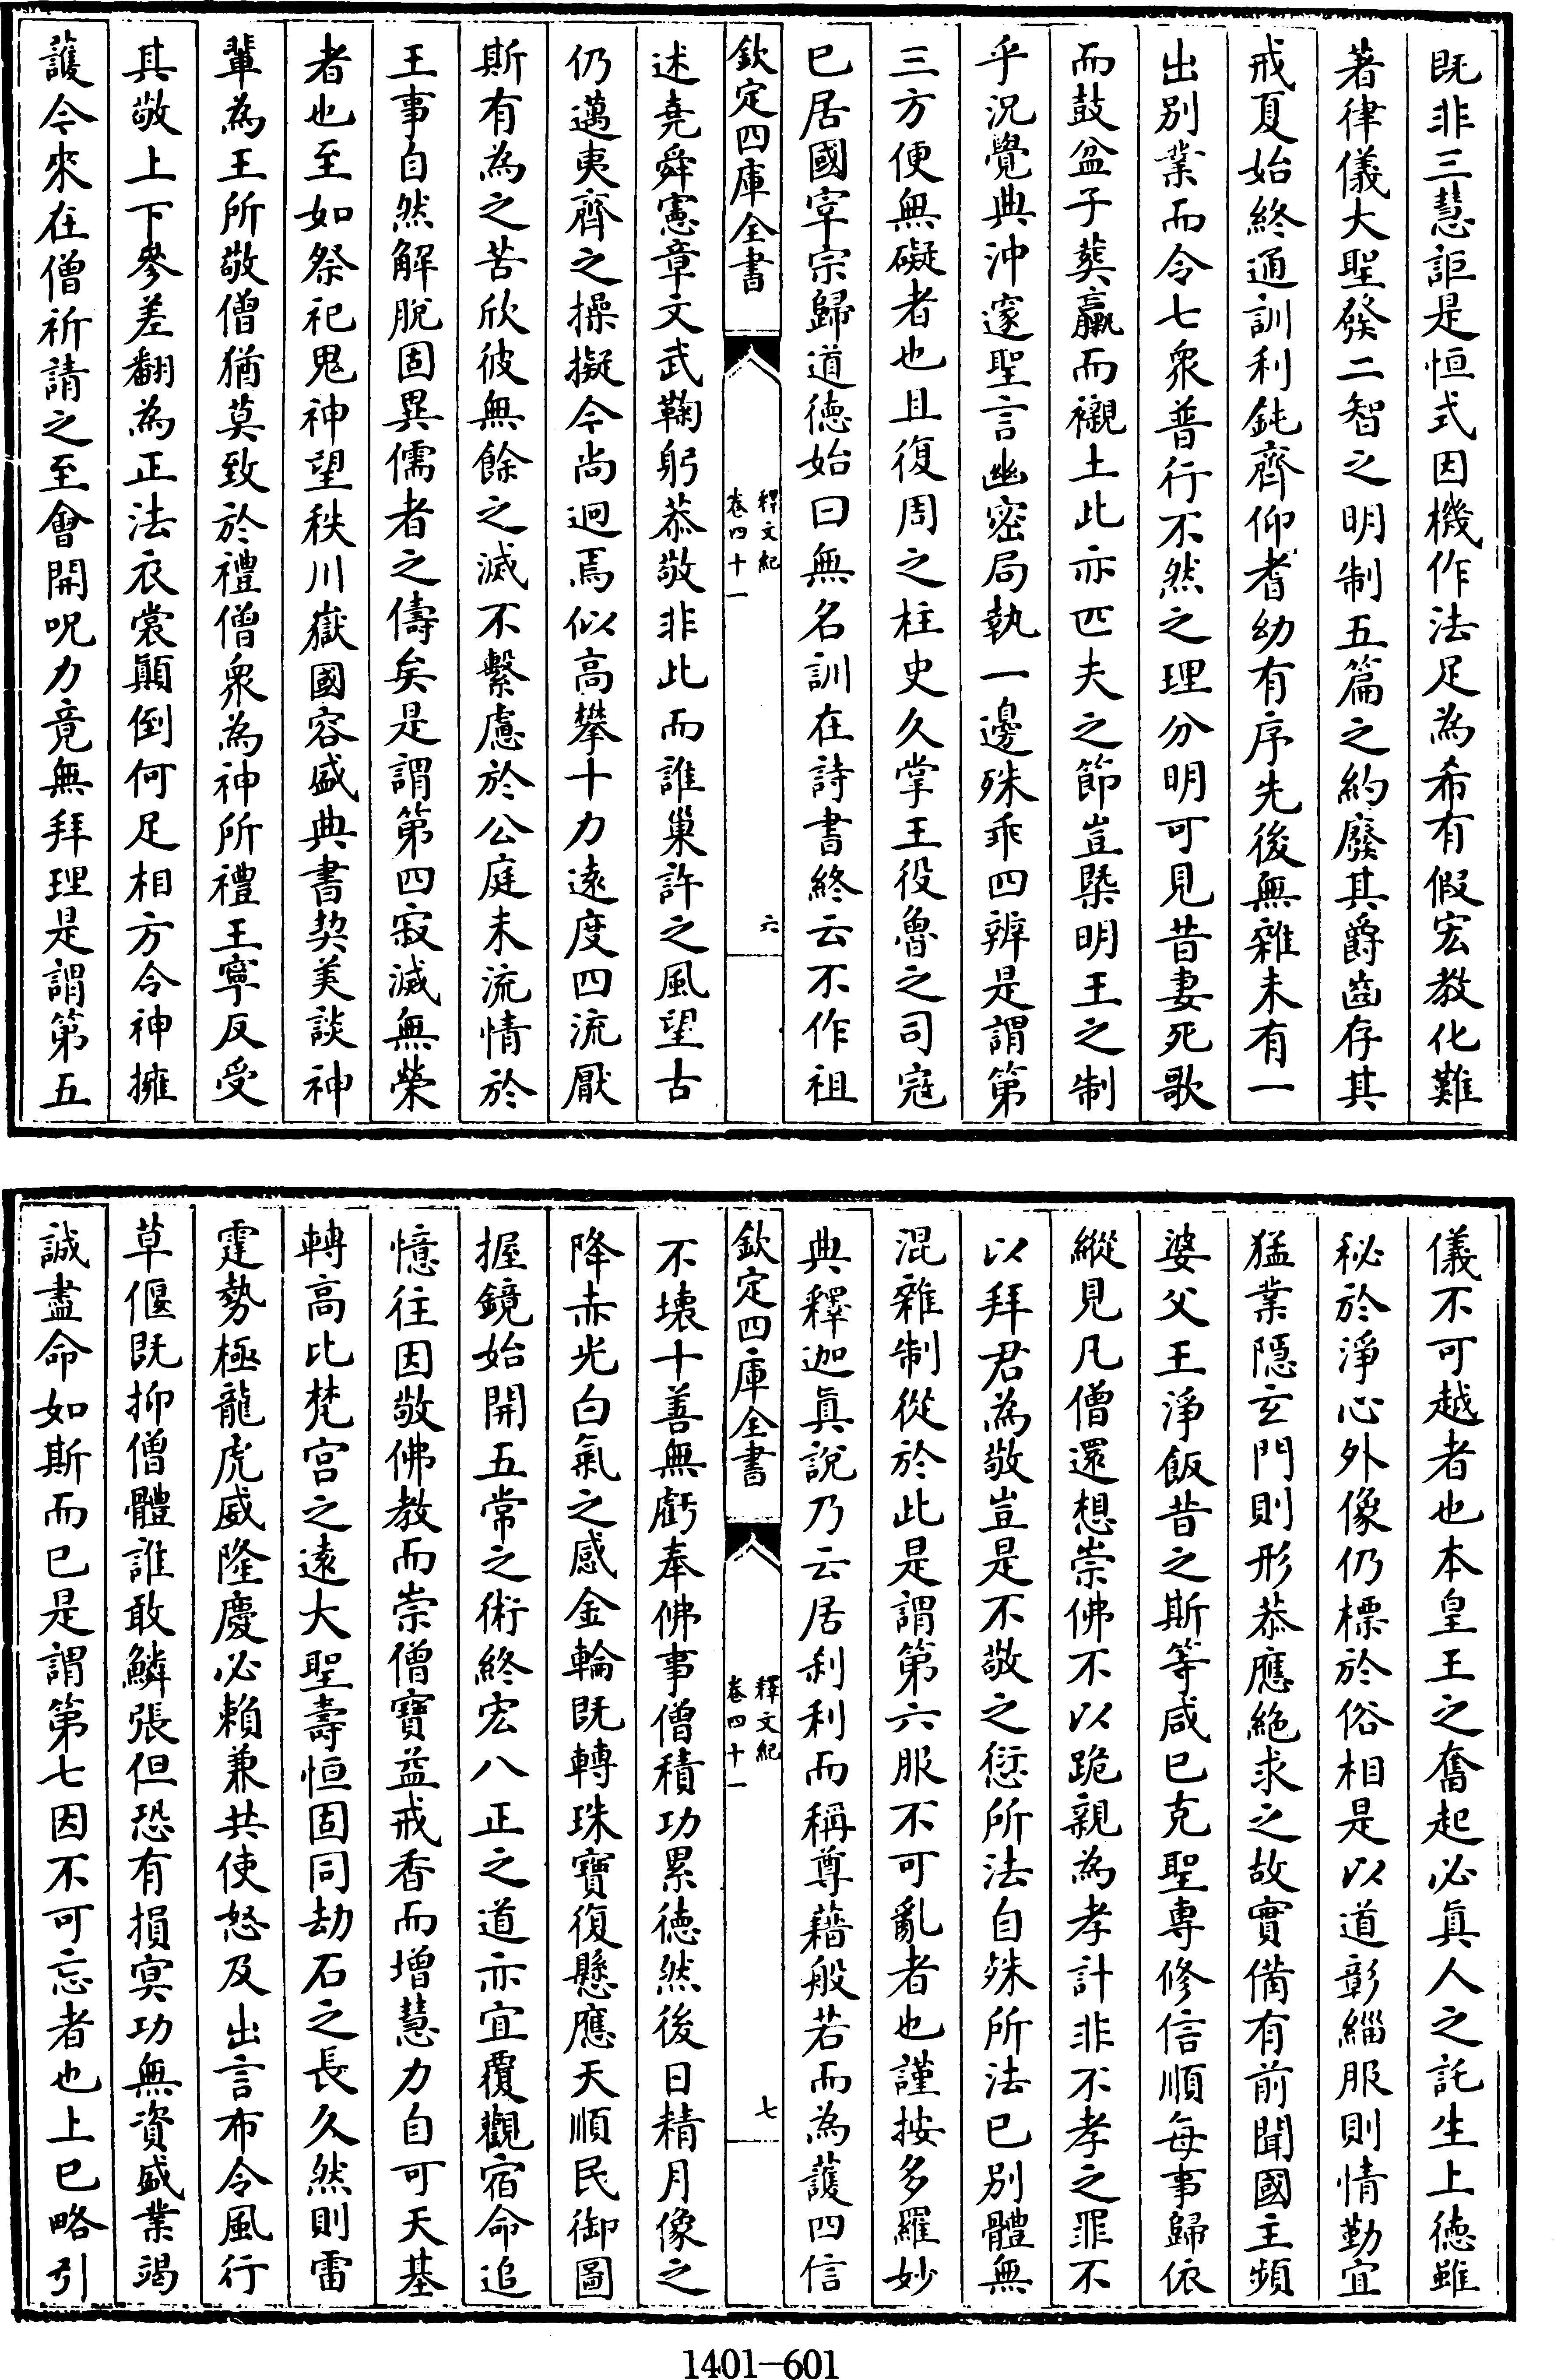 既非三慧詎是恒式因機作法足為希有假宏教化難
著律儀大聖發二智之明制五篇之約廢其爵齒存其
戒夏始終通訓利鈍齊仰耆幼有序先後無雜未有一
出別業而令七衆普行不然之理分明可見昔妻死歌
而鼓盆子葬嬴而襯土此亦匹夫之節豈槩明王之制
乎況覺典沖邃聖言幽密局執一邊殊乖四辨是謂第
三方便無礙者也且復周之柱史久掌王役魯之司冦
已居國宰宗歸道徳始曰無名訓在詩書終云不作祖
欽定四庫全書
釋文紀
卷四十一
六
述堯舜憲章文武鞠躬恭敬非此而誰巢許之風望古
仍邁夷齊之操擬今尚迥焉似高攀十力逺度四流厭
斯有為之苦欣彼無餘之滅不繫慮於公庭未流情於
王事自然解脫固異儒者之儔矣是謂第四寂滅無榮
者也至如祭祀鬼神望秩川嶽國容盛典書契美談神
輩為王所敬僧猶莫致於禮僧衆為神所禮王寧反受
其敬上下參差翻為正法衣裳顛倒何足相方令神擁
護今來在僧祈請之至會開呪力竟無拜理是謂第五
儀不可越者也本皇王之奮起必真人之託生上徳雖
秘於淨心外像仍標於俗相是以道彰緇服則情勤宜
猛業隠玄門則形恭應絶求之故實備有前聞國主頻
婆父王淨飯昔之斯等咸已克聖專修信順每事歸依
縱見凡僧還想崇佛不以跪親為孝計非不孝之罪不
以拜君為敬豈是不敬之愆所法自殊所法已別體無
混雜制從於此是謂第六服不可亂者也謹按多羅妙
典釋迦真說乃云居刹利而稱尊藉般若而為護四信
欽定四庫全書
釋文紀
卷四十一
七
不壊十善無虧奉佛事僧積功累徳然後日精月像之
降赤光白氣之感金輪既轉珠寶復懸應天順民御圖
握鏡始開五常之術終宏八正之道亦宜覆觀宿命追
憶往因敬佛教而崇僧寶益戒香而增慧力自可天基
轉高比梵宮之逺大聖壽恒固同劫石之長久然則雷
霆勢極龍虎威隆慶必賴兼共使怒及出言布令風行
草偃既抑僧體誰敢鱗張但恐有損㝠功無資盛業竭
誠盡命如斯而已是謂第七因不可忘者也上已略引
1401—601